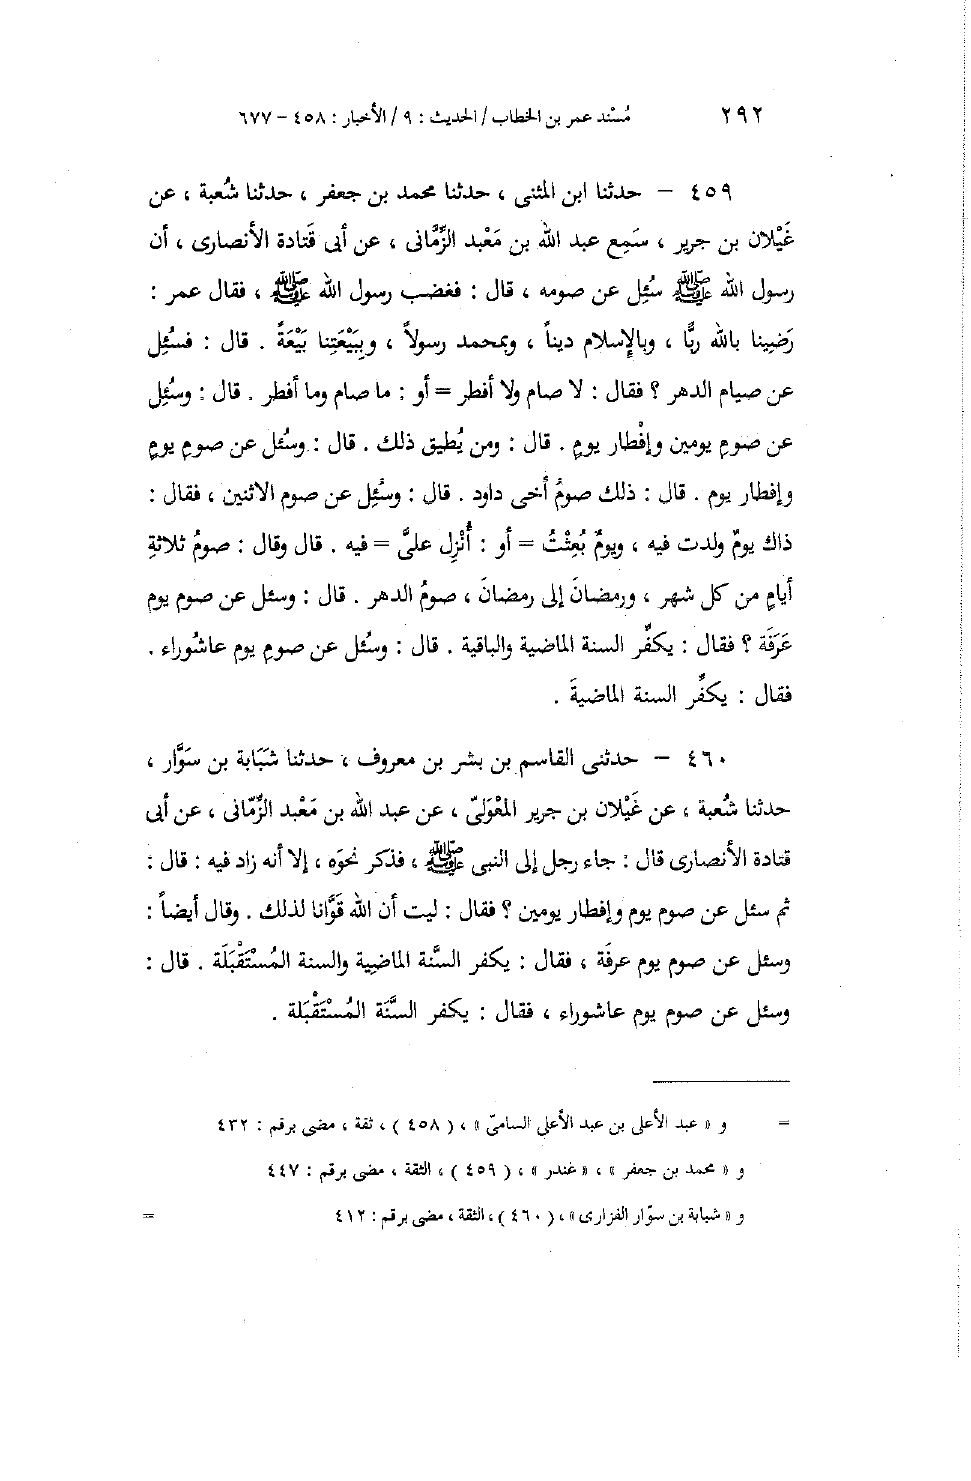 ٢٩٢ مُسْند عمر بن الخطاب / الحديث : ٩ / الأخبار : ٤٥٨ – ٦٧٧
٤٥٩ – حدثنا ابن المثنى ، حدثنا محمد بن جعفر ، حدثنا شُعبة ، عن
غَيْلان بن جرير ، سَمِع عبد الله بن مَعْبد الزِّمَّانى ، عن أبى قَتادة الأنصارى ، أن
رسول الله ﷺ سُئِل عن صومه ، قال : فغضب رسول الله ﷺ ، فقال عمر :
رَضِينا بالله ربًّا ، وبالإسلام ديناً ، وبمحمد رسولاً ، وبِبَيْعَتِنا بَيْعَةً . قال : فسُئِل
عن صيام الدهر ؟ فقال : لا صام ولا أفطر = أو : ما صام وما أفطر . قال : وسُئِل
عن صومِ يومين وإفْطار يومٍ . قال : ومن يُطيق ذلك . قال : وسُئل عن صومِ يومٍ
وإفطار يوم . قال : ذلك صومُ أخى داود . قال : وسُئِل عن صوم الاثنين ، فقال :
ذاك يومٌ ولدت فيه ، ويومٌ بُعِثْتُ = أو : أُنْزِل علىَّ = فيه . قال وقال : صومُ ثلاثةِ
أيامٍ من كل شهر ، ورمضانَ إلى رمضانَ ، صومُ الدهر . قال : وسئل عن صوم يوم
عَرَفَة ؟ فقال : يكفِّر السنة الماضية والباقية . قال : وسُئل عن صومِ يوم عاشُوراء .
فقال : يكفِّر السنة الماضيةَ .
٤٦٠ – حدثنى القاسم بن بشر بن معروف ، حدثنا شَبَابة بن سَوَّار ،
حدثنا شُعبة ، عن غَيْلان بن جرير المَعْوَلىّ ، عن عبد الله بن مَعْبد الزِّمّانى ، عن أبى
قتادة الأنصارى قال : جاء رجل إلى النبى ﷺ ، فذكر نحوَه ، إلا أنه زاد فيه : قال :
ثم سئل عن صوم يوم وإفطار يومين ؟ فقال : ليت أن الله قَوَّانا لذلك . وقال أيضاً :
وسئل عن صوم يوم عرفَة ، فقال : يكفر السَّنة الماضِية والسنة المُسْتَقْبَلَة . قال :
وسئل عن صوم يوم عاشوراء ، فقال : يكفر السَّنَة المُسْتَقْبَلة .
= و « عبد الأعلى بن عبد الأعلى السامىّ » ، ( ٤٥٨ ) ، ثقة ، مضى برقم : ٤٣٢
و « محمد بن جعفر » ، « غندر » ، ( ٤٥٩ ) ، الثقة ، مضى برقم : ٤٤٧
و « شبابة بن سوّار الفزارى » ، ( ٤٦٠ ) ، الثقة ، مضى برقم : ٤١٢ =